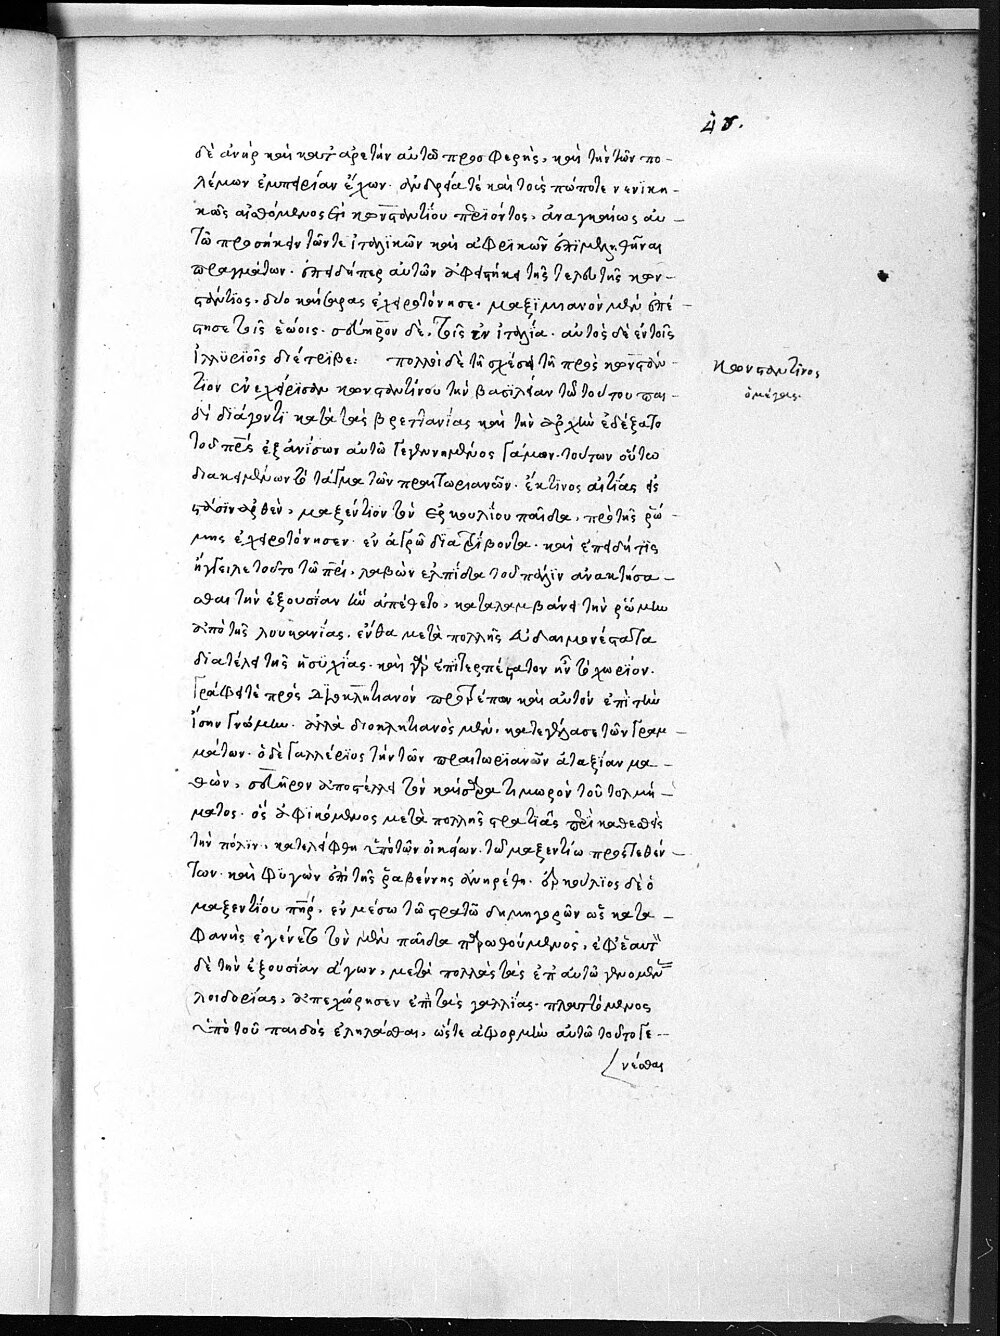 48.
δὲ ἀνὴρ καὶ κατ' ἀρετὴν αὐτῶ προσφερὴς, καὶ τὴν τῶν πο-
λέμων ἐμπειρίαν ἔχων. ἀνδρεία τὲ καὶ τοῖς πώποτε νενικη-
κῶς αἰσθόμενος ἐπὶ κωνσταντίου περιόντος, ἀναγκαίως αὐ-
τῶ προσήκειν τῶντε ἰταλικῶν καὶ ἀφρικῶν ἐπιμεληθῆναι
πραγμάτων. ἐπειδήπερ αὐτῶν ἀφειστήκει τῆς τελευτῆς κων-
στάντιος, δύο καίσαρας ἐχειροτόνησε. μαξιμιανὸν μὲν ἐπέ-
στησε τοῖς ἑώοις. σευῆρον δὲ, τοῖς ἐν ἰταλία. αὐτὸς δὲ ἐν τοῖς
ἰλλυριοῖς διέτριβε: πολλοὶ δὲ τῆ σχέσει τῆ πρὸς κωνστάν-
τιον ἐνεχείρισαν κωνσταντίνου τὴν βασιλείαν τῶ τούτου παι-
δὶ διάγοντι κατὰ τὰς βρεττανίας καὶ τὴν ἀρχὴν ἐδέξατο
τοῦ πρς ἐξ ἀνίσων αὐτῶ γεγενημένος γάμων. τούτων οὕτω
διακειμένων τὸ τάγμα τῶν πραιτωριανῶν. ἔκ τινος αἰτίας εἰς
στάσιν ἀρθὲν, μαξέντιον τὸν ἑρκουλίου παῖδα, πρὸ τῆς ῥώ-
μης ἐχειροτόνησεν. ἐν ἀγρῶ διατρίβοντα. καὶ ἐπειδή τις
ἤγγειλε τοῦτο τῶ πρι, λαβὼν ἐλπίδα τοῦ πάλιν ἀνακτήσα-
σθαι τὴν ἐξουσίαν ἣν ἀπέθετο, καταλαμβάνει τὴν ῥώμην
ἀπὸ τῆς λουκανίας. ἔνθα μετὰ πολλῆς εὐδαιμονέστατα
διατέλει τῆς ἡσυχίας. καὶ γὰρ ἐπιτερπέστατον ἦν τὸ χωρίον.
γράφει τὲ πρὸς διοκλητιανὸν προτρέπων καὶ αὐτὸν ἐπὶ τὴν
ἴσην γνώμην. ἀλλὰ διοκλητιανὸς μὲν, κατεγέλασε τῶν γραμ-
μάτων. ὁ δὲ γαλλέριος τὴν τῶν πραιτωριανῶν ἀταξίαν μα-
θὼν, σευῆρον ἀποστέλλει τὸν καίσαρα τιμωρὸν τοῦ τολμή-
ματος. ὃς ἀφικόμενος μετὰ πολλῆς στρατιᾶς περικαθεσθεὶς
τὴν πόλιν, κατελείφθη ὑπὸ τῶν οἰκείων. τῶ μαξεντίω προστεθέν-
των. καὶ φυγὼν ἐπὶ τῆς ῥαβέννης ἀνηρέθη. ἑρκούλιος δὲ ὁ
μαξεντίου πηρ, ἐν μέσω τῶ στρατῶ δημηγορῶν ὡς κατα-
φανὴς ἐγένετο τὸν μὲν παῖδα παρωθούμενος, ἐφ' ἑαυτὸν
δὲ τὴν ἐξουσίαν ἄγων, μετὰ πολλὰς τὰς ἐπ' αὐτῶ γενομένας
λοιδορίας, ἀπεχώρησεν ἐπὶ τὰς γαλλίας. πλαττόμενος
ὑπὸ τοῦ παιδὸς ἐληλάσθαι, ὥστε ἀφορμὴν αὐτῶ τοῦτο γε-
νέσθαι
κωνσταντῖνος
ὁ μέγας.